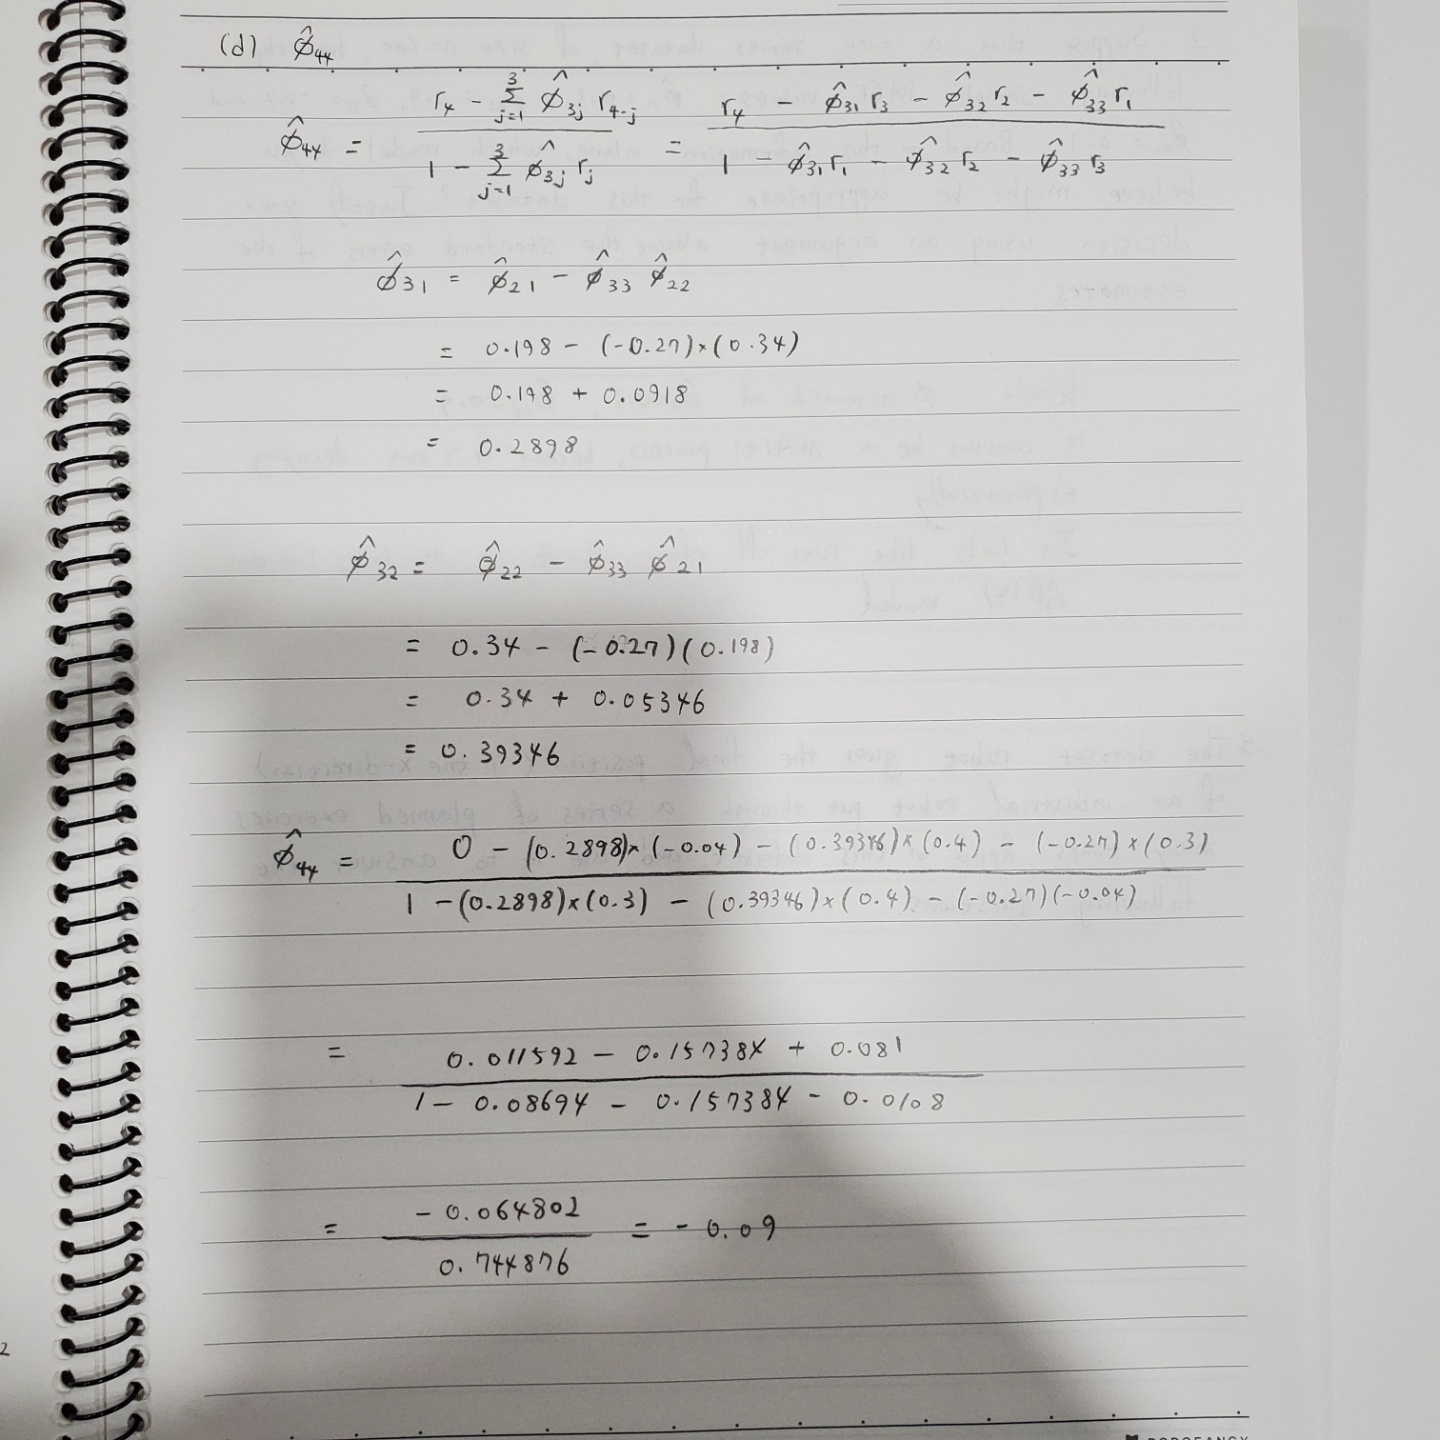 (d) φ̂₄₄
φ̂₄₄ = (r₄ - Σ_{j=1}^{3} φ̂₃ⱼ r₄₋ⱼ) / (1 - Σ_{j=1}^{3} φ̂₃ⱼ rⱼ) = (r₄ - φ̂₃₁ r₃ - φ̂₃₂ r₂ - φ̂₃₃ r₁) / (1 - φ̂₃₁ r₁ - φ̂₃₂ r₂ - φ̂₃₃ r₃)
φ̂₃₁ = φ̂₂₁ - φ̂₃₃ φ̂₂₂
= 0.198 - (-0.27)×(0.34)
= 0.198 + 0.0918
= 0.2898
φ̂₃₂ = φ̂₂₂ - φ̂₃₃ φ̂₂₁
= 0.34 - (-0.27)(0.198)
= 0.34 + 0.05346
= 0.39346
φ̂₄₄ = (0 - (0.2898)×(-0.04) - (0.39346)×(0.4) - (-0.27)×(0.3)) / (1 - (0.2898)×(0.3) - (0.39346)×(0.4) - (-0.27)(-0.04))
= (0.011592 - 0.157384 + 0.081) / (1 - 0.08694 - 0.157384 - 0.0108)
= -0.064802 / 0.744876 = -0.09
2